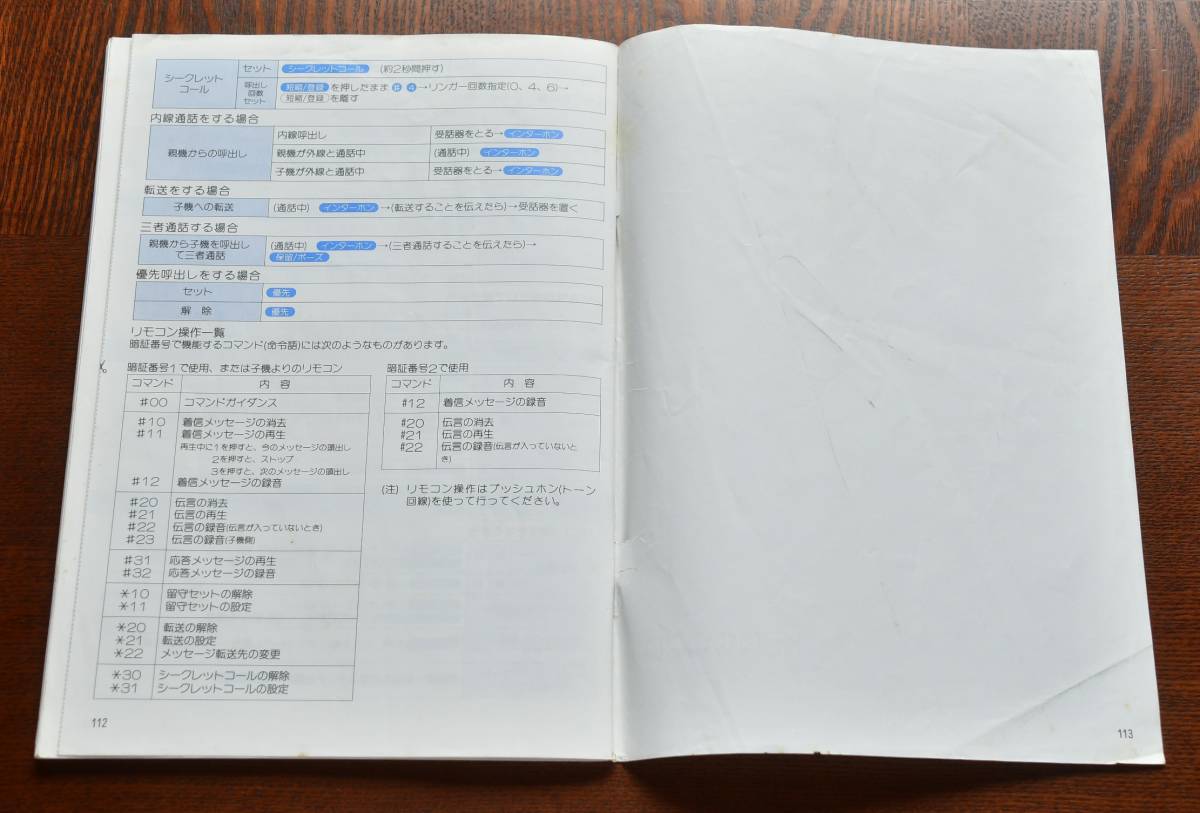 シークレット
コール
セット
シークレットコール (約2秒間押す)
呼出し
回数
セット
短縮/登録 を押したまま # 4→リンガー回数指定(0、4、6)→
短縮/登録 を離す
内線通話をする場合
親機からの呼出し
内線呼出し 受話器をとる→インターホン
親機が外線と通話中 (通話中) インターホン
子機が外線と通話中 受話器をとる→インターホン
転送をする場合
子機への転送 (通話中) インターホン→(転送することを伝えたら)→受話器を置く
三者通話する場合
親機から子機を呼出し
て三者通話
(通話中) インターホン→(三者通話することを伝えたら)→
保留/ポーズ
優先呼出しをする場合
セット 優先
解 除 優先
リモコン操作一覧
暗証番号で機能するコマンド(命令語)には次のようなものがあります。
暗証番号1で使用、または子機よりのリモコン
コマンド 内 容
#00 コマンドガイダンス
#10 着信メッセージの消去
#11 着信メッセージの再生
再生中に1を押すと、今のメッセージの頭出し
2を押すと、ストップ
3を押すと、次のメッセージの頭出し
#12 着信メッセージの録音
#20 伝言の消去
#21 伝言の再生
#22 伝言の録音(伝言が入っていないとき)
#23 伝言の録音(子機側)
#31 応答メッセージの再生
#32 応答メッセージの録音
*10 留守セットの解除
*11 留守セットの設定
*20 転送の解除
*21 転送の設定
*22 メッセージ転送先の変更
*30 シークレットコールの解除
*31 シークレットコールの設定
暗証番号2で使用
コマンド 内 容
#12 着信メッセージの録音
#20 伝言の消去
#21 伝言の再生
#22 伝言の録音(伝言が入っていないと
き)
(注) リモコン操作はプッシュホン(トーン
回線)を使って行ってください。
112
113